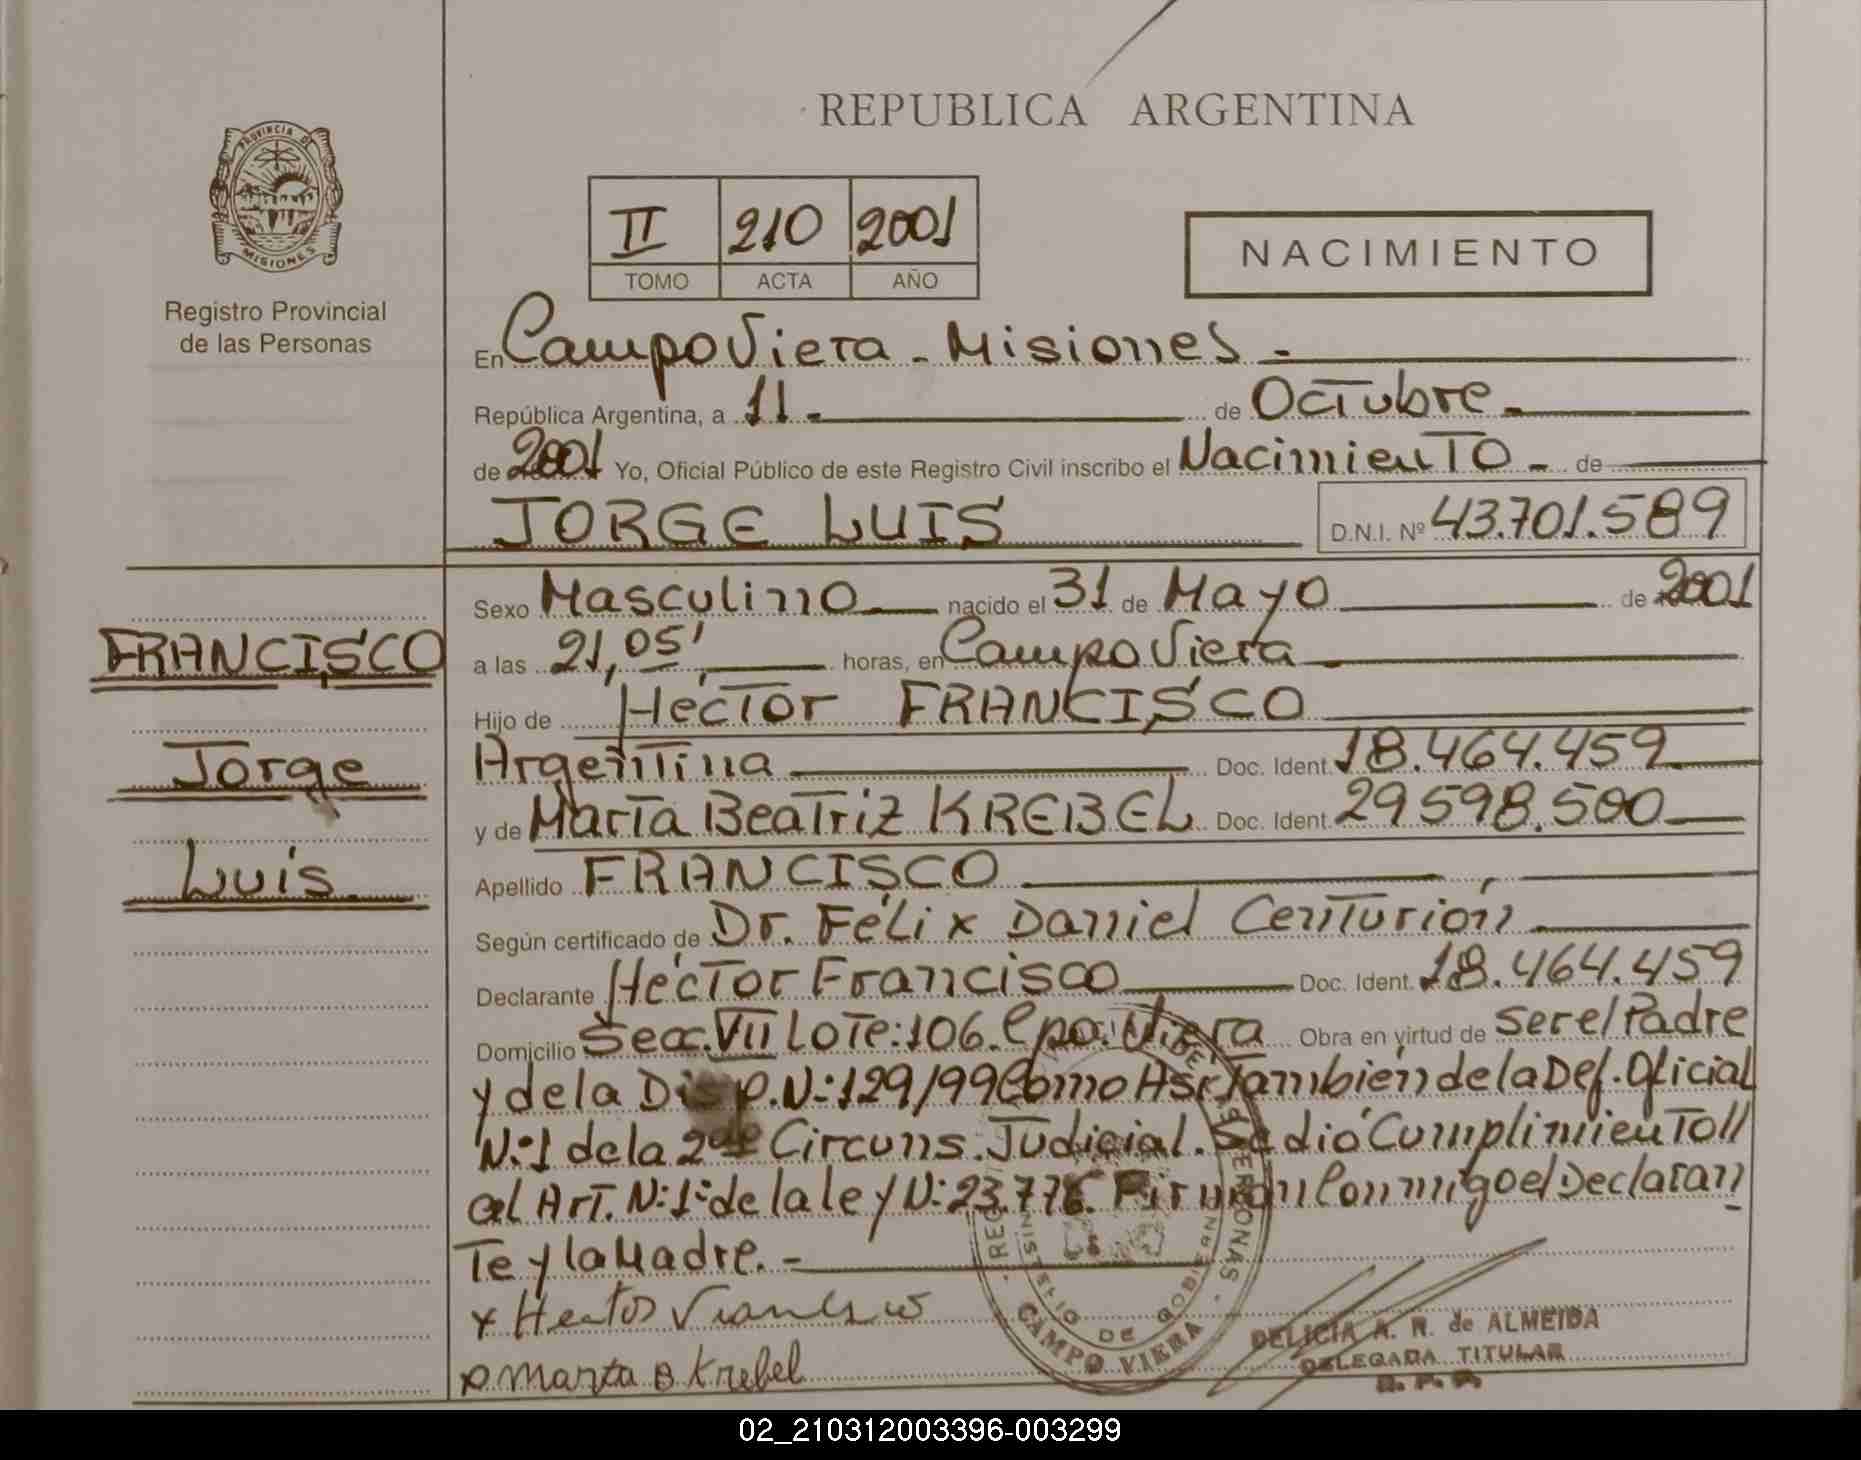 REPUBLICA ARGENTINA
PROVINCIA DE
MISIONES
Registro Provincial
de las Personas
II 210 2001
TOMO ACTA AÑO
NACIMIENTO
En Campo Viera - Misiones -
República Argentina, a 11 - de Octubre -
de 2001 Yo, Oficial Público de este Registro Civil inscribo el Nacimiento - de
JORGE LUIS D.N.I. Nº 43.701.589
FRANCISCO
Jorge
Luis
Sexo Masculino nacido el 31 de Mayo de 2001
a las 21,05' horas, en Campo Viera
Hijo de Hector FRANCISCO
Argentina Doc. Ident. 18.464.459
y de Marta Beatriz KREBEL Doc. Ident. 29.598.500
Apellido FRANCISCO
Según certificado de Dr. Félix Daniel Centurión
Declarante Hector Francisco Doc. Ident. 18.464.459
Domicilio Secc. VII Lote: 106. Cpo. Viera Obra en virtud de ser el Padre
y de la Disp. N: 129/99 Como Asi Tambien de la Def. Oficial
N: 1 de la 2da Circuns. Judicial. Se dió Cumplimiento ll
al Art. N: 1º de la ley N: 23.776. Firman Conmigo el Declaran
te y la Madre. -
x Hector Francisco
x Marta B Krebel
CAMPO VIERA
DELICIA A. R. de ALMEIDA
DELEGADA TITULAR
R. P. P.
02_210312003396-003299